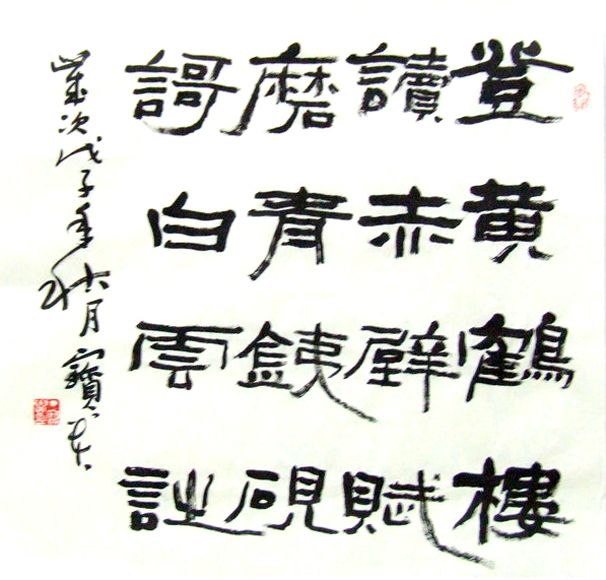 登黄鶴樓
讀赤壁賦
磨青銕硯
謌白雲詩
歲次戊子年秋月寶